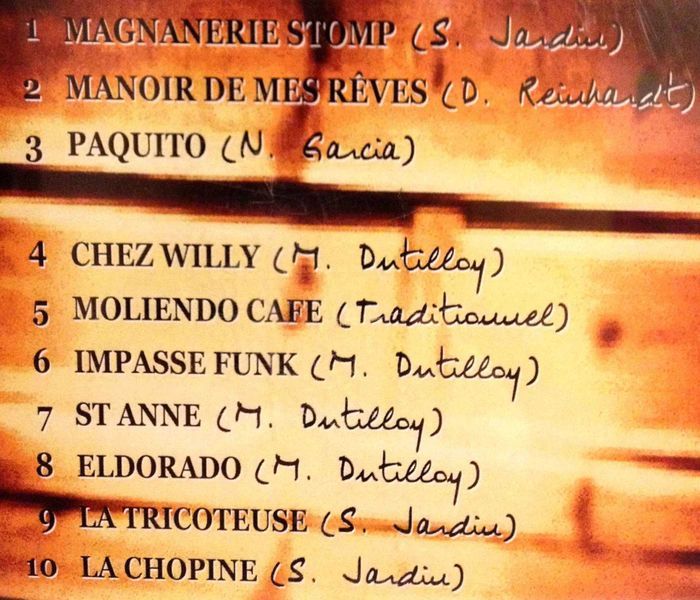 1 MAGNANERIE STOMP (S. Jardin)
2 MANOIR DE MES RÊVES (D. Reinhardt)
3 PAQUITO (N. Garcia)
4 CHEZ WILLY (M. Dutilloy)
5 MOLIENDO CAFE (Traditionnel)
6 IMPASSE FUNK (M. Dutilloy)
7 ST ANNE (M. Dutilloy)
8 ELDORADO (M. Dutilloy)
9 LA TRICOTEUSE (S. Jardin)
10 LA CHOPINE (S. Jardin)